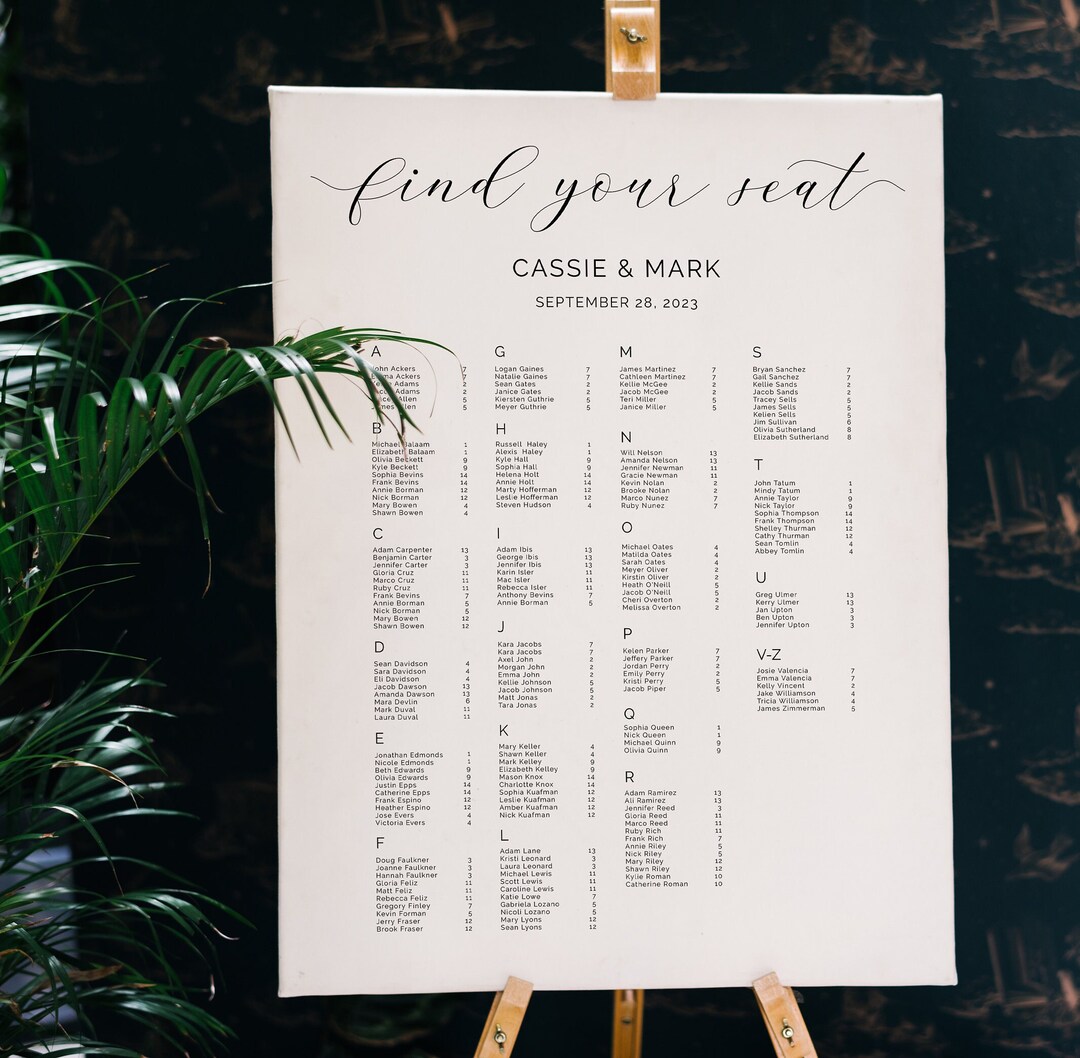 find your seat
CASSIE & MARK
SEPTEMBER 28, 2023
A
John Ackers 7
Ackers 7
Adams 2
Adams 2
Allen 5
Allen 5
B
Michael Balaam 1
Elizabeth Balaam 1
Olivia Beckett 9
Kyle Beckett 9
Sophia Bevins 14
Frank Bevins 14
Annie Borman 12
Nick Borman 12
Mary Bowen 4
Shawn Bowen 4
C
Adam Carpenter 13
Benjamin Carter 3
Jennifer Carter 3
Gloria Cruz 11
Marco Cruz 11
Ruby Cruz 11
Frank Bevins 7
Annie Borman 5
Nick Borman 5
Mary Bowen 12
Shawn Bowen 12
D
Sean Davidson 4
Sara Davidson 4
Eli Davidson 4
Jacob Dawson 13
Amanda Dawson 13
Mara Devlin 6
Mark Duval 11
Laura Duval 11
E
Jonathan Edmonds 1
Nicole Edmonds 1
Beth Edwards 9
Olivia Edwards 9
Justin Epps 14
Catherine Epps 14
Frank Espino 12
Heather Espino 12
Jose Evers 4
Victoria Evers 4
F
Doug Faulkner 3
Joanne Faulkner 3
Hannah Faulkner 3
Gloria Feliz 11
Matt Feliz 11
Rebecca Feliz 11
Gregory Finley 7
Kevin Forman 5
Jerry Fraser 12
Brook Fraser 12
G
Logan Gaines 7
Natalie Gaines 7
Sean Gates 2
Janice Gates 2
Kiersten Guthrie 5
Meyer Guthrie 5
H
Russell Haley 1
Alexis Haley 1
Kyle Hall 9
Sophia Hall 9
Helena Holt 14
Annie Holt 14
Marty Hofferman 12
Leslie Hofferman 12
Steven Hudson 4
I
Adam Ibis 13
George Ibis 13
Jennifer Ibis 13
Karin Isler 11
Mac Isler 11
Rebecca Isler 11
Anthony Bevins 7
Annie Borman 5
J
Kara Jacobs 7
Kara Jacobs 7
Axel John 2
Morgan John 2
Emma John 2
Kellie Johnson 5
Jacob Johnson 5
Matt Jonas 2
Tara Jonas 2
K
Mary Keller 4
Shawn Keller 4
Mark Kelley 9
Elizabeth Kelley 9
Mason Knox 14
Charlotte Knox 14
Sophia Kuafman 12
Leslie Kuafman 12
Amber Kuafman 12
Nick Kuafman 12
L
Adam Lane 13
Kristi Leonard 3
Laura Leonard 3
Michael Lewis 11
Scott Lewis 11
Caroline Lewis 11
Katie Lowe 7
Gabriela Lozano 5
Nicoli Lozano 5
Mary Lyons 12
Sean Lyons 12
M
James Martinez 7
Cathleen Martinez 7
Kellie McGee 2
Jacob McGee 2
Teri Miller 5
Janice Miller 5
N
Will Nelson 13
Amanda Nelson 13
Jennifer Newman 11
Gracie Newman 11
Kevin Nolan 2
Brooke Nolan 2
Marco Nunez 7
Ruby Nunez 7
O
Michael Oates 4
Matilda Oates 4
Sarah Oates 4
Meyer Oliver 2
Kirstin Oliver 2
Heath O'Neill 5
Jacob O'Neill 5
Cheri Overton 2
Melissa Overton 2
P
Kelen Parker 7
Jeffery Parker 7
Jordan Perry 2
Emily Perry 2
Kristi Perry 5
Jacob Piper 5
Q
Sophia Queen 1
Nick Queen 1
Michael Quinn 9
Olivia Quinn 9
R
Adam Ramirez 13
Ali Ramirez 13
Jennifer Reed 3
Gloria Reed 11
Marco Reed 11
Ruby Rich 11
Frank Rich 7
Annie Riley 5
Nick Riley 5
Mary Riley 12
Shawn Riley 12
Kylie Roman 10
Catherine Roman 10
S
Bryan Sanchez 7
Gail Sanchez 7
Kellie Sands 2
Jacob Sands 2
Tracey Sells 5
James Sells 5
Kelien Sells 5
Jim Sullivan 6
Olivia Sutherland 8
Elizabeth Sutherland 8
T
John Tatum 1
Mindy Tatum 1
Annie Taylor 9
Nick Taylor 9
Sophia Thompson 14
Frank Thompson 14
Shelley Thurman 12
Cathy Thurman 12
Sean Tomlin 4
Abbey Tomlin 4
U
Greg Ulmer 13
Kerry Ulmer 13
Jan Upton 3
Ben Upton 3
Jennifer Upton 3
V-Z
Josie Valencia 7
Emma Valencia 7
Kelly Vincent 2
Jake Williamson 4
Tricia Williamson 4
James Zimmerman 5